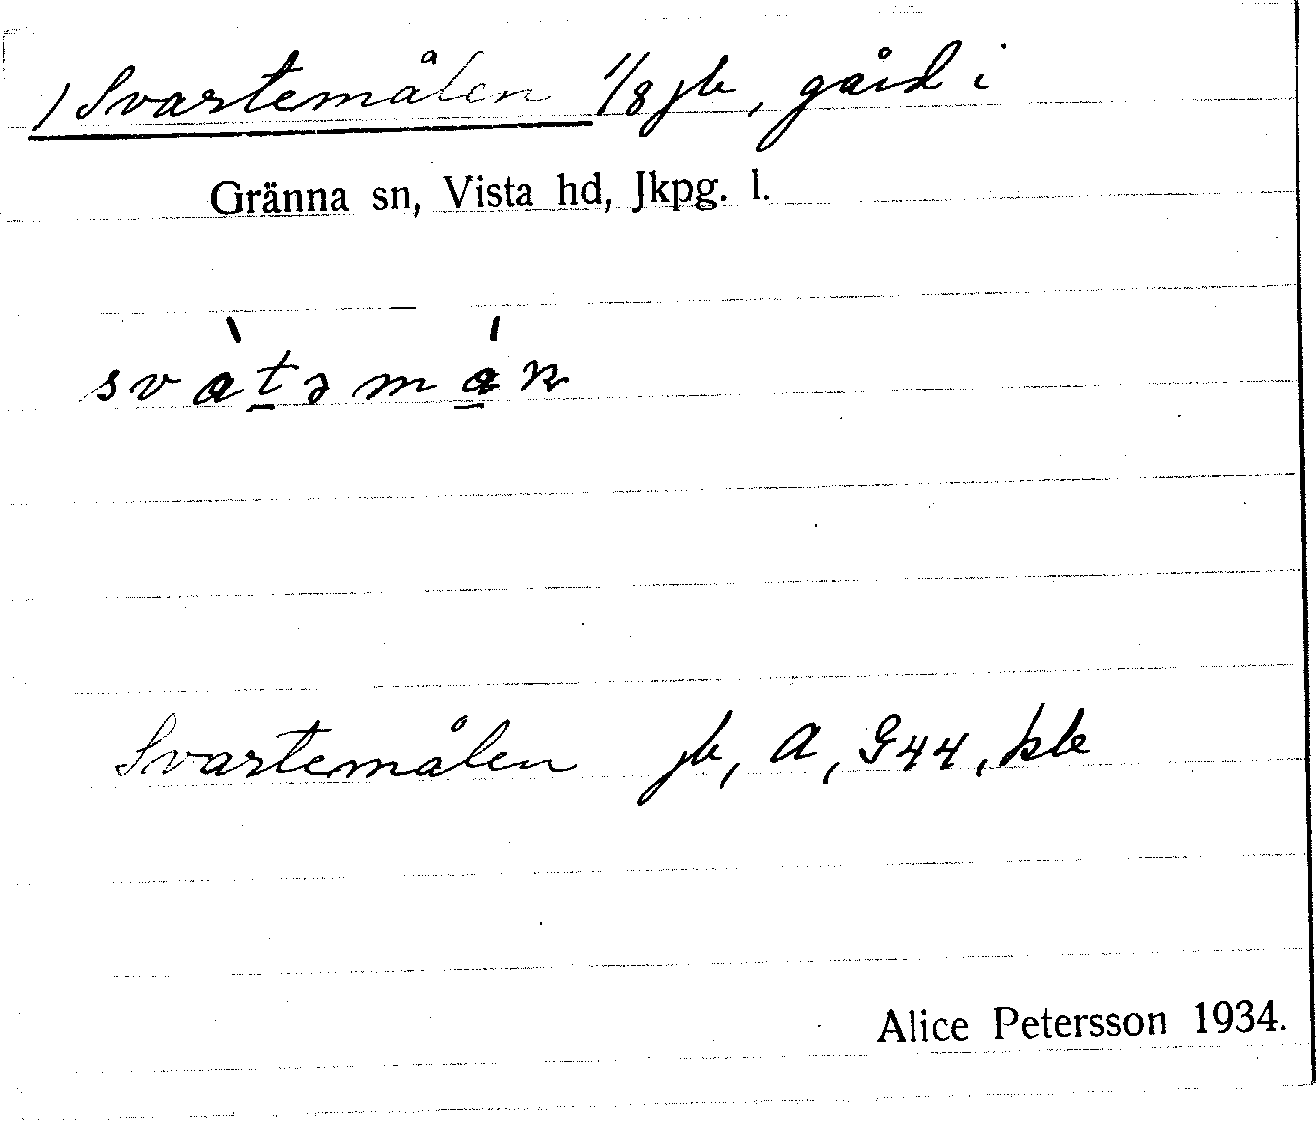 1) Svartemålen 1/8 jb, gård i
Gränna sn, Vista hd, Jkpg. l.
Svartemålen jb, A, G44, kb
Alice Petersson 1934.